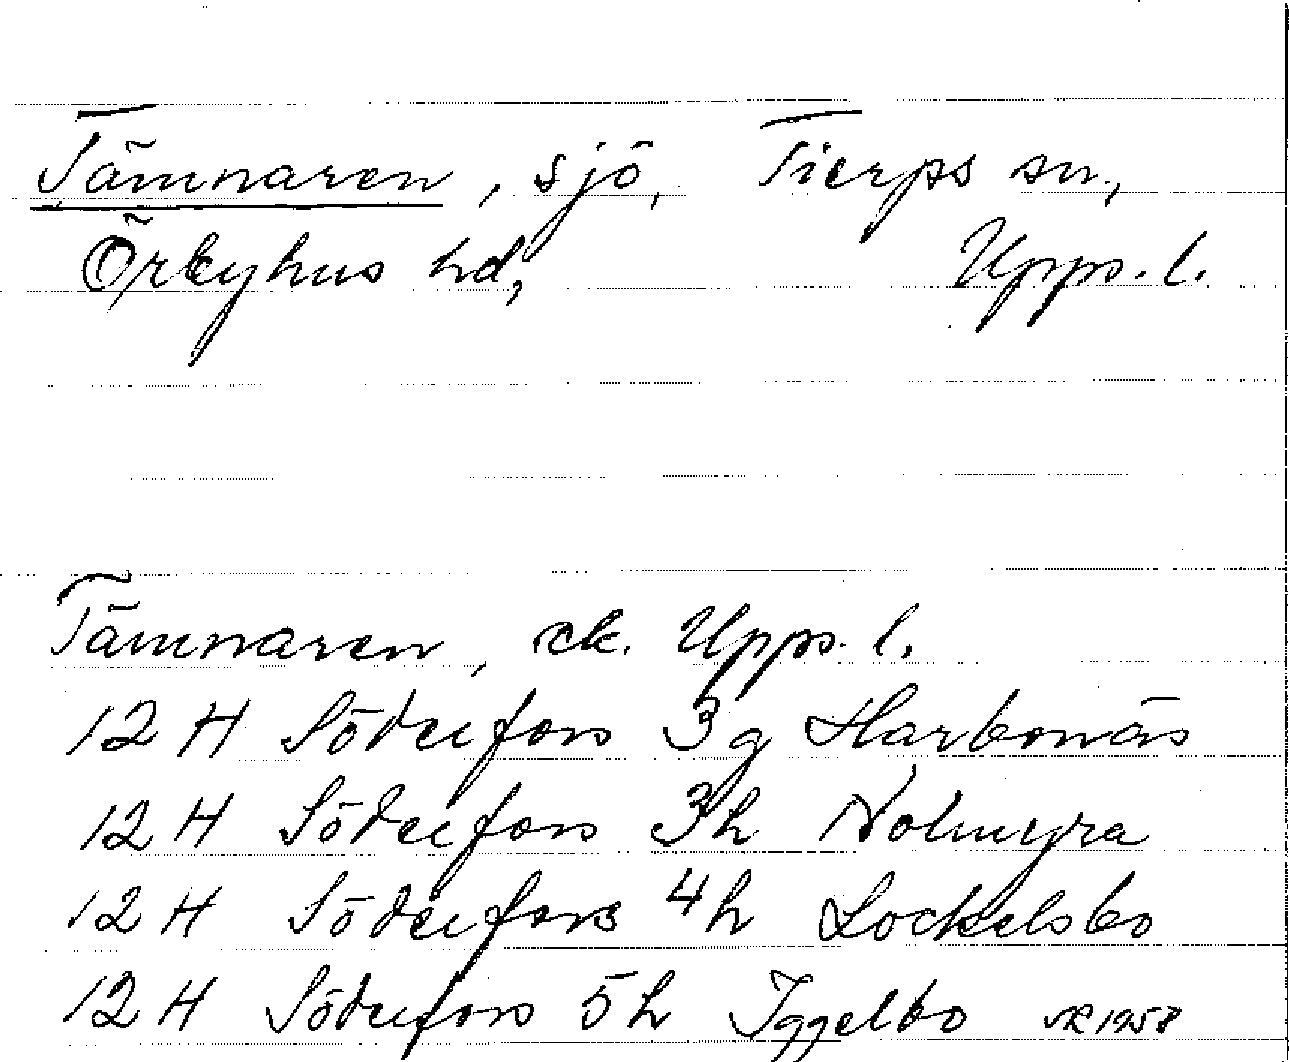 Tämnaren, sjö, Tierps sn,
Örbyhus hd, Upps. l.
Tämnaren, ek. Upps. l.
12 H Söderfors 3g Harbonäs
12 H Söderfors 3h Nolmyra
12 H Söderfors 4h Lockelsbo
12 H Söderfors 5h Iggelbo 1958